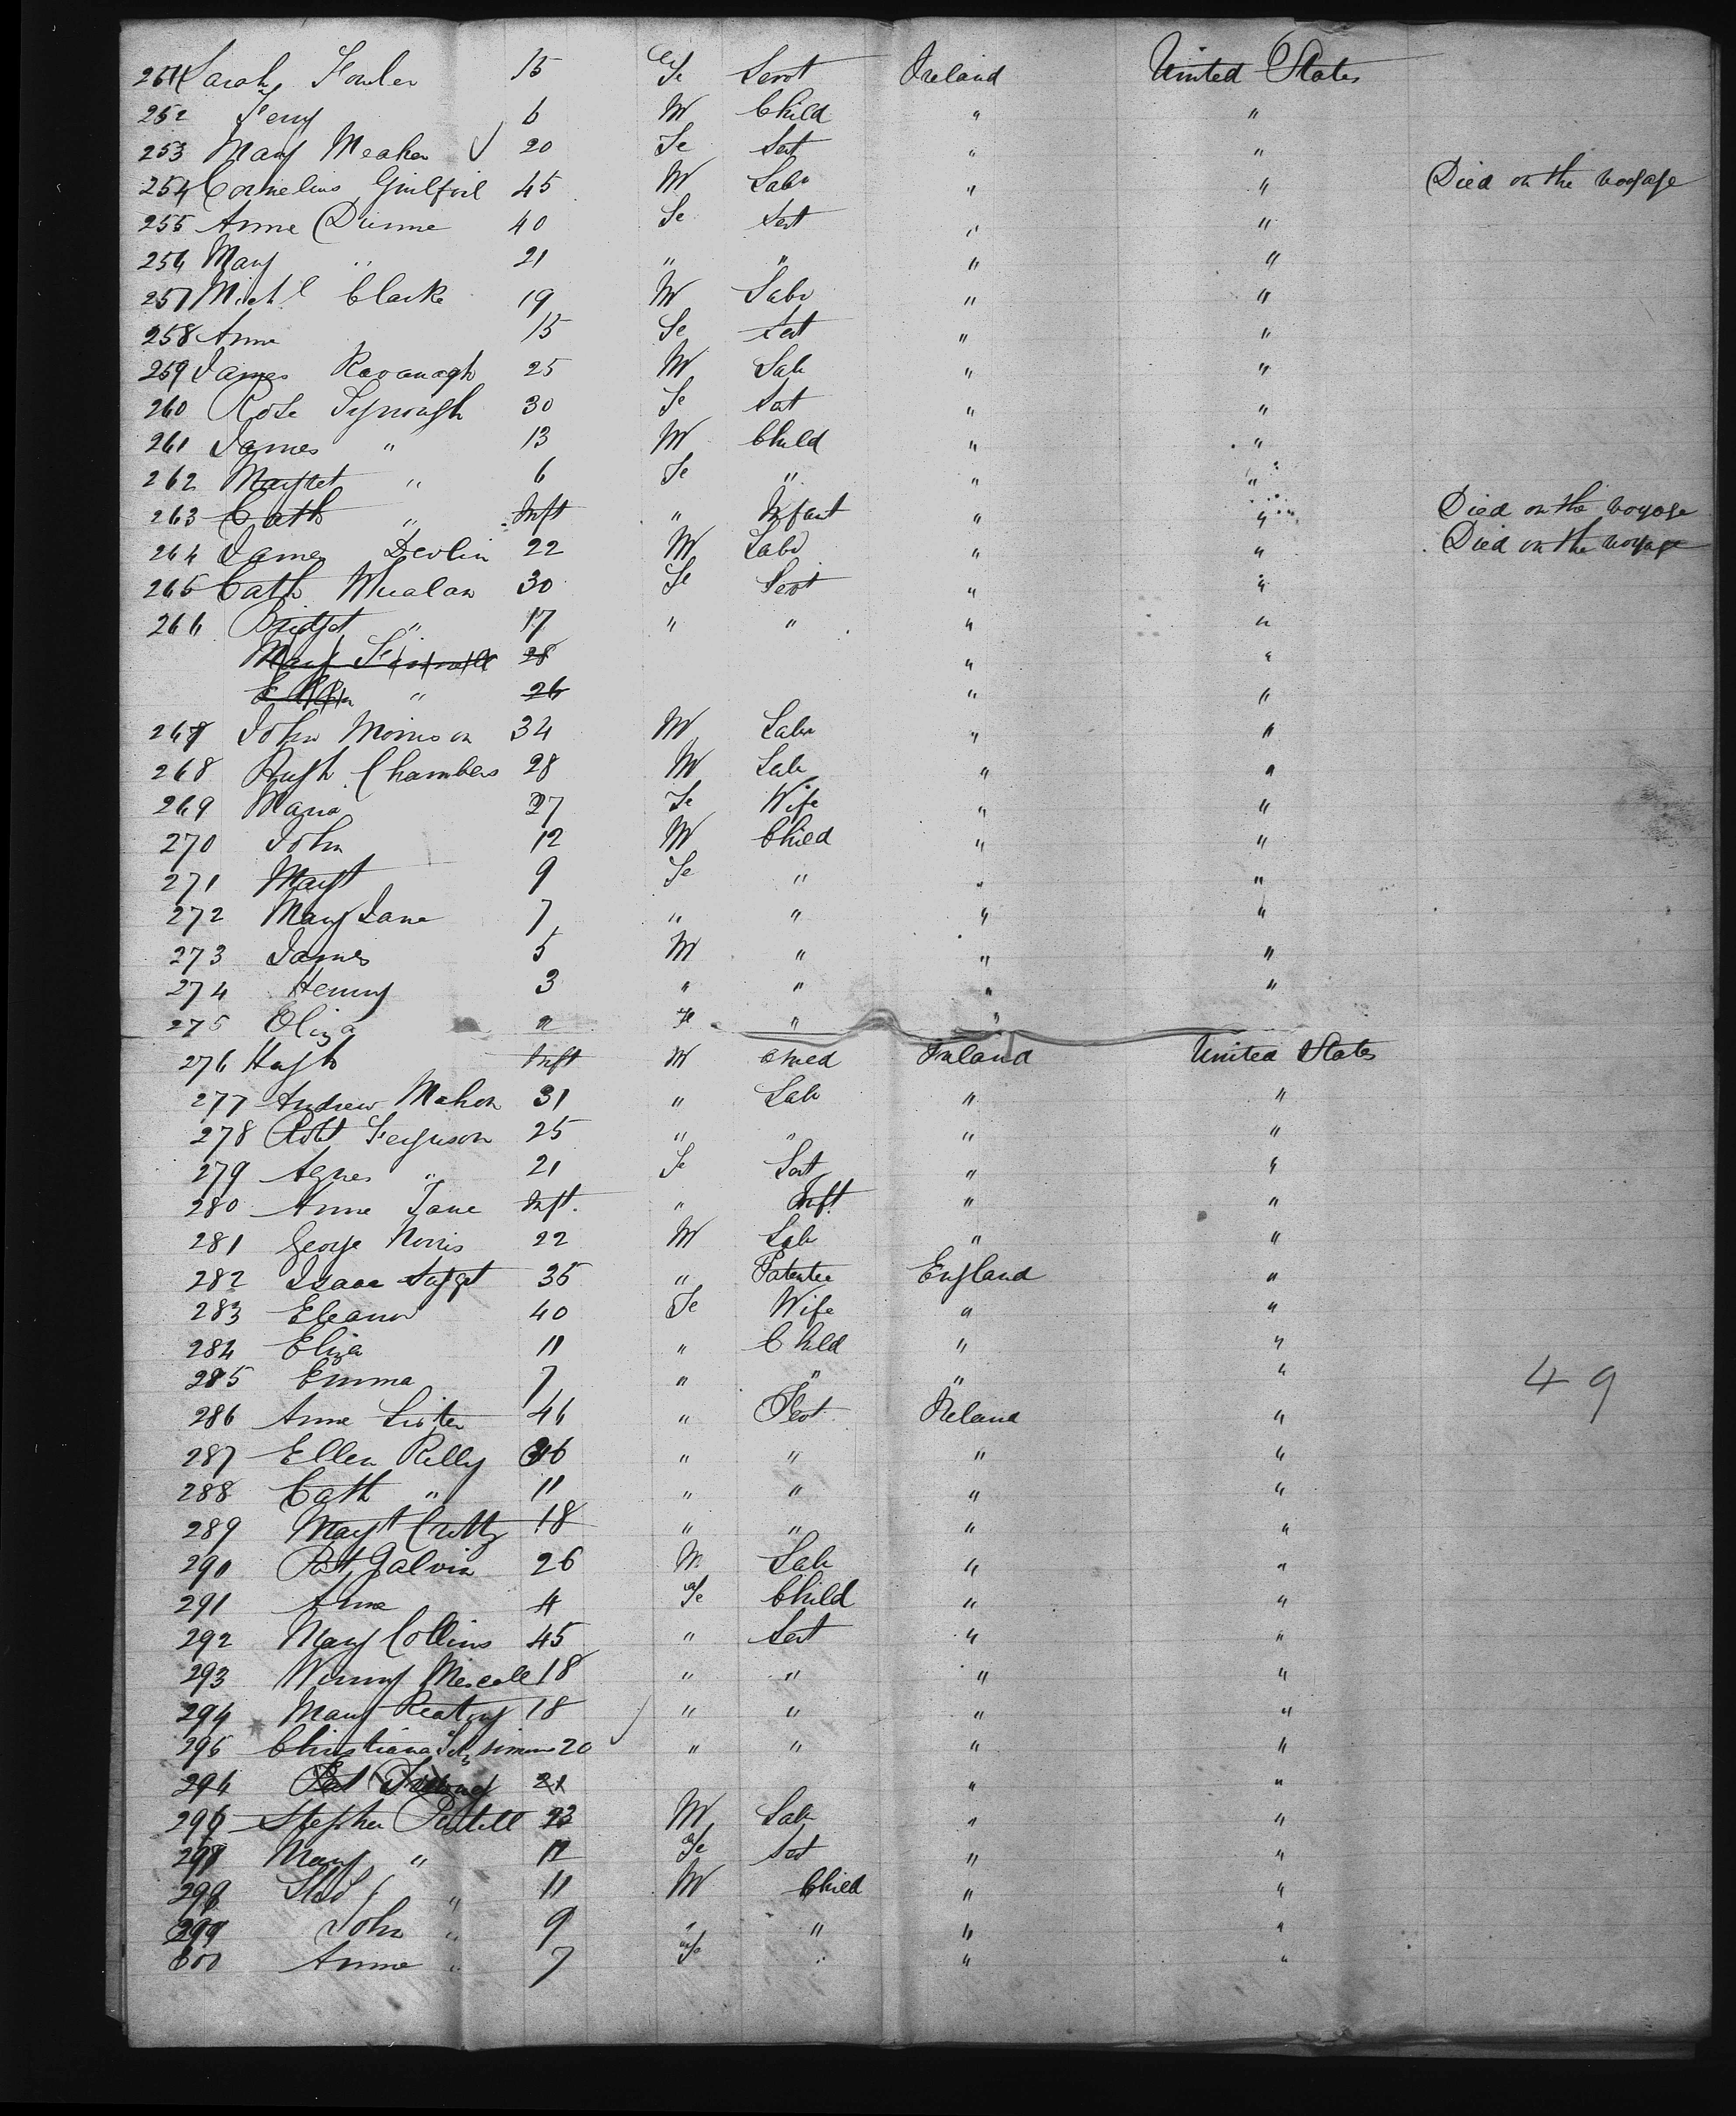 251 Sarah Fowler 15 Fe Servt Ireland United States
252 Terry 6 M Child " "
253 Mary Meaher 20 Fe Sert " "
254 Cornelius Guilfoil 45 M Labr " " Died on the voyage
255 Anne Dunne 40 Fe Sert " "
256 Mary " 21 " " " "
257 Michl Clarke 19 M Labr " "
258 Anne 15 Fe Sert " "
259 James Kavanagh 25 M Lab " "
260 Rose 30 Fe Sert " "
261 James " 13 M Child " "
262 Margret " 6 Fe " " "
263 Cath " Inft " Infant " " Died on the voyage
264 James Devlin 22 M Labr " " Died on the voyage
265 Cath 30 Fe Servt " "
266 Bridget " 17 " " " "
Mary 28 " "
Ellen " 26 " "
267 John Morrison 34 M Labr " "
268 Hugh Chambers 28 M Lab " "
269 Maria 27 Fe Wife " "
270 John 12 M Child " "
271 Margt 9 Fe " " "
272 Mary Jane 7 " " " "
273 James 5 M " " "
274 Henry 3 " " " "
275 Eliza " Fe " "
276 Hugh Inft M Child Ireland United States
277 Andrew Mahon 31 " Lab " "
278 Robt Ferguson 25 " " " "
279 Agnes " 21 Fe Sert " "
280 Anne Jane Inft. " Inft " "
281 George Norris 22 M Lab " "
282 Isaac 35 " Patentee England "
283 Eleanor 40 Fe Wife " "
284 Eliza 11 " Child " "
285 Emma 7 " " " " 49
286 Anne Lister 46 " Sert Ireland "
287 Ellen Rilly 36 " " " "
288 Cath " 11 " " " "
289 Margt Crotty 18 " " " "
290 Pat Galvin 26 M Lab " "
291 Anne 4 Fe Child " "
292 Mary Collins 45 " Sert " "
293 Winny Mescall 18 " " " "
294 Mary Keatony 18 " " " "
295 Christiana Fitzsimons 20 " " " "
296 Pat 21 " "
296 Stephen 23 M Lab " "
297 Mary " 17 Fe Sert " "
298 " 11 M Child " "
299 John " 9 " " " "
300 Anne " 7 Fe " " "